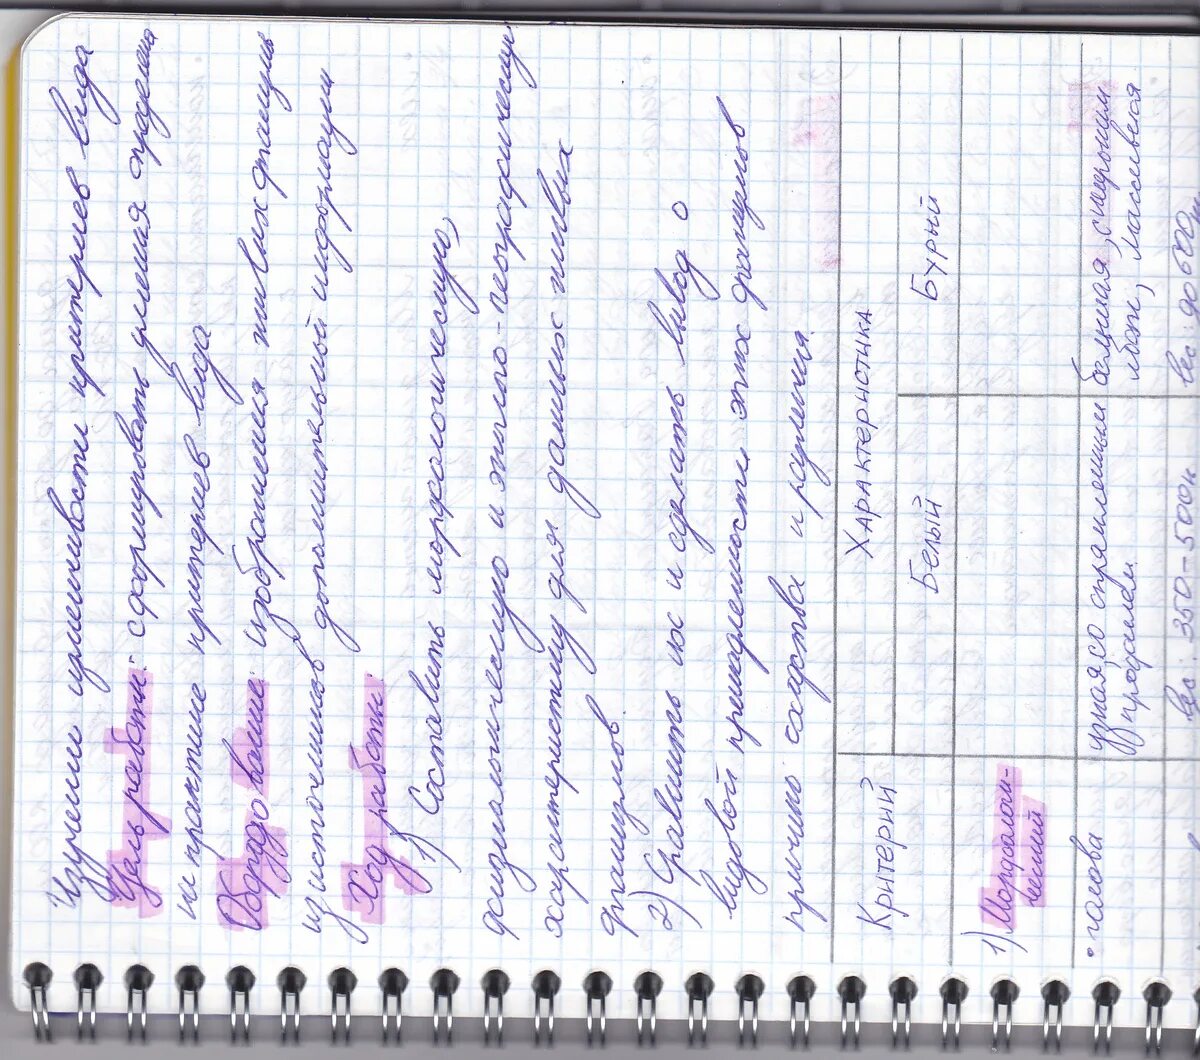 Изучении изменчивости критериев вида
Цель работы: сформировать умения определен
на практике критериев вида
Оборудование: изображения живых организмы
из источников дополнительной информации
Ход работы:
1) Составить морфологическую,
физиологическую и эколого-географическую
характеристику для данных живых
организмов.
2) Сравнить их и сделать вывод о
видовой принадлежности этих организмов
причины сходства и различия.
Критерий Характеристика
Белый Бурый
1) Морфологи-
ческий
• голова узкая, со спрямленным профилем большая, с широким лбом, массивная
вес: 350-500 вес до 600